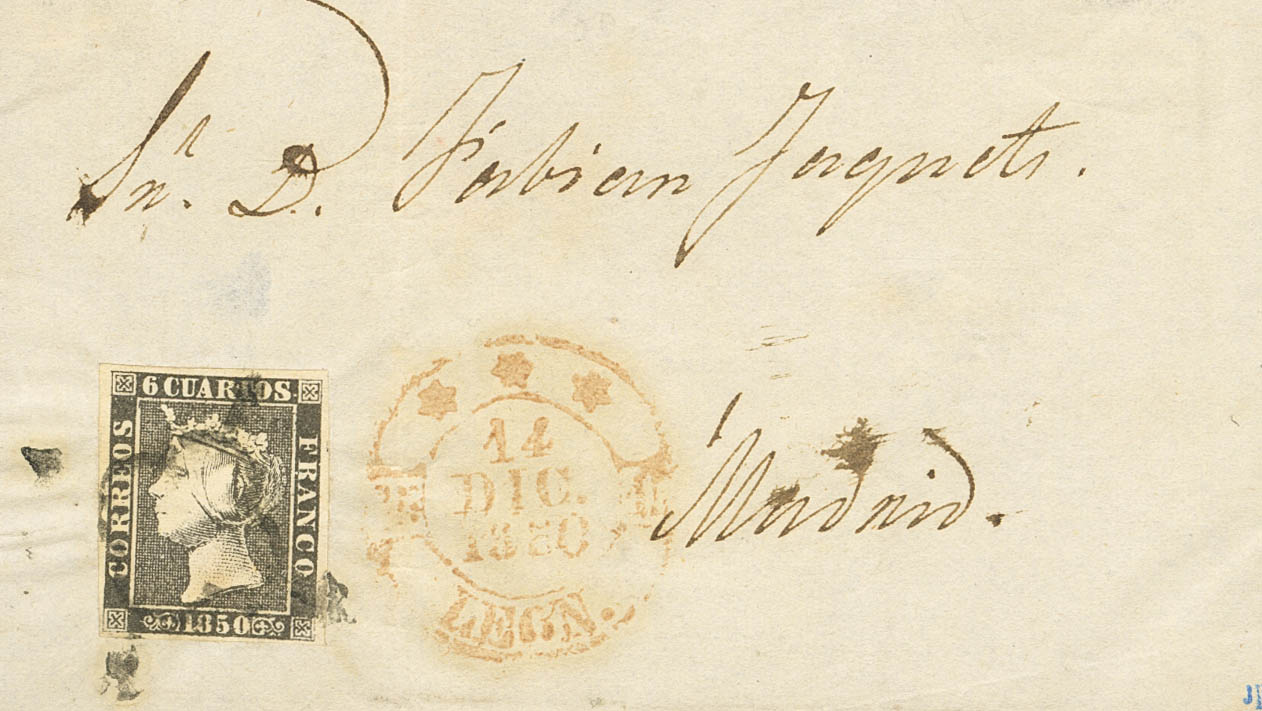 Sr. D. Fabian Jaquets.
6 CUARTOS.
CORREOS
FRANCO
1850
14
DIC.
1850
LEON.
Madrid.